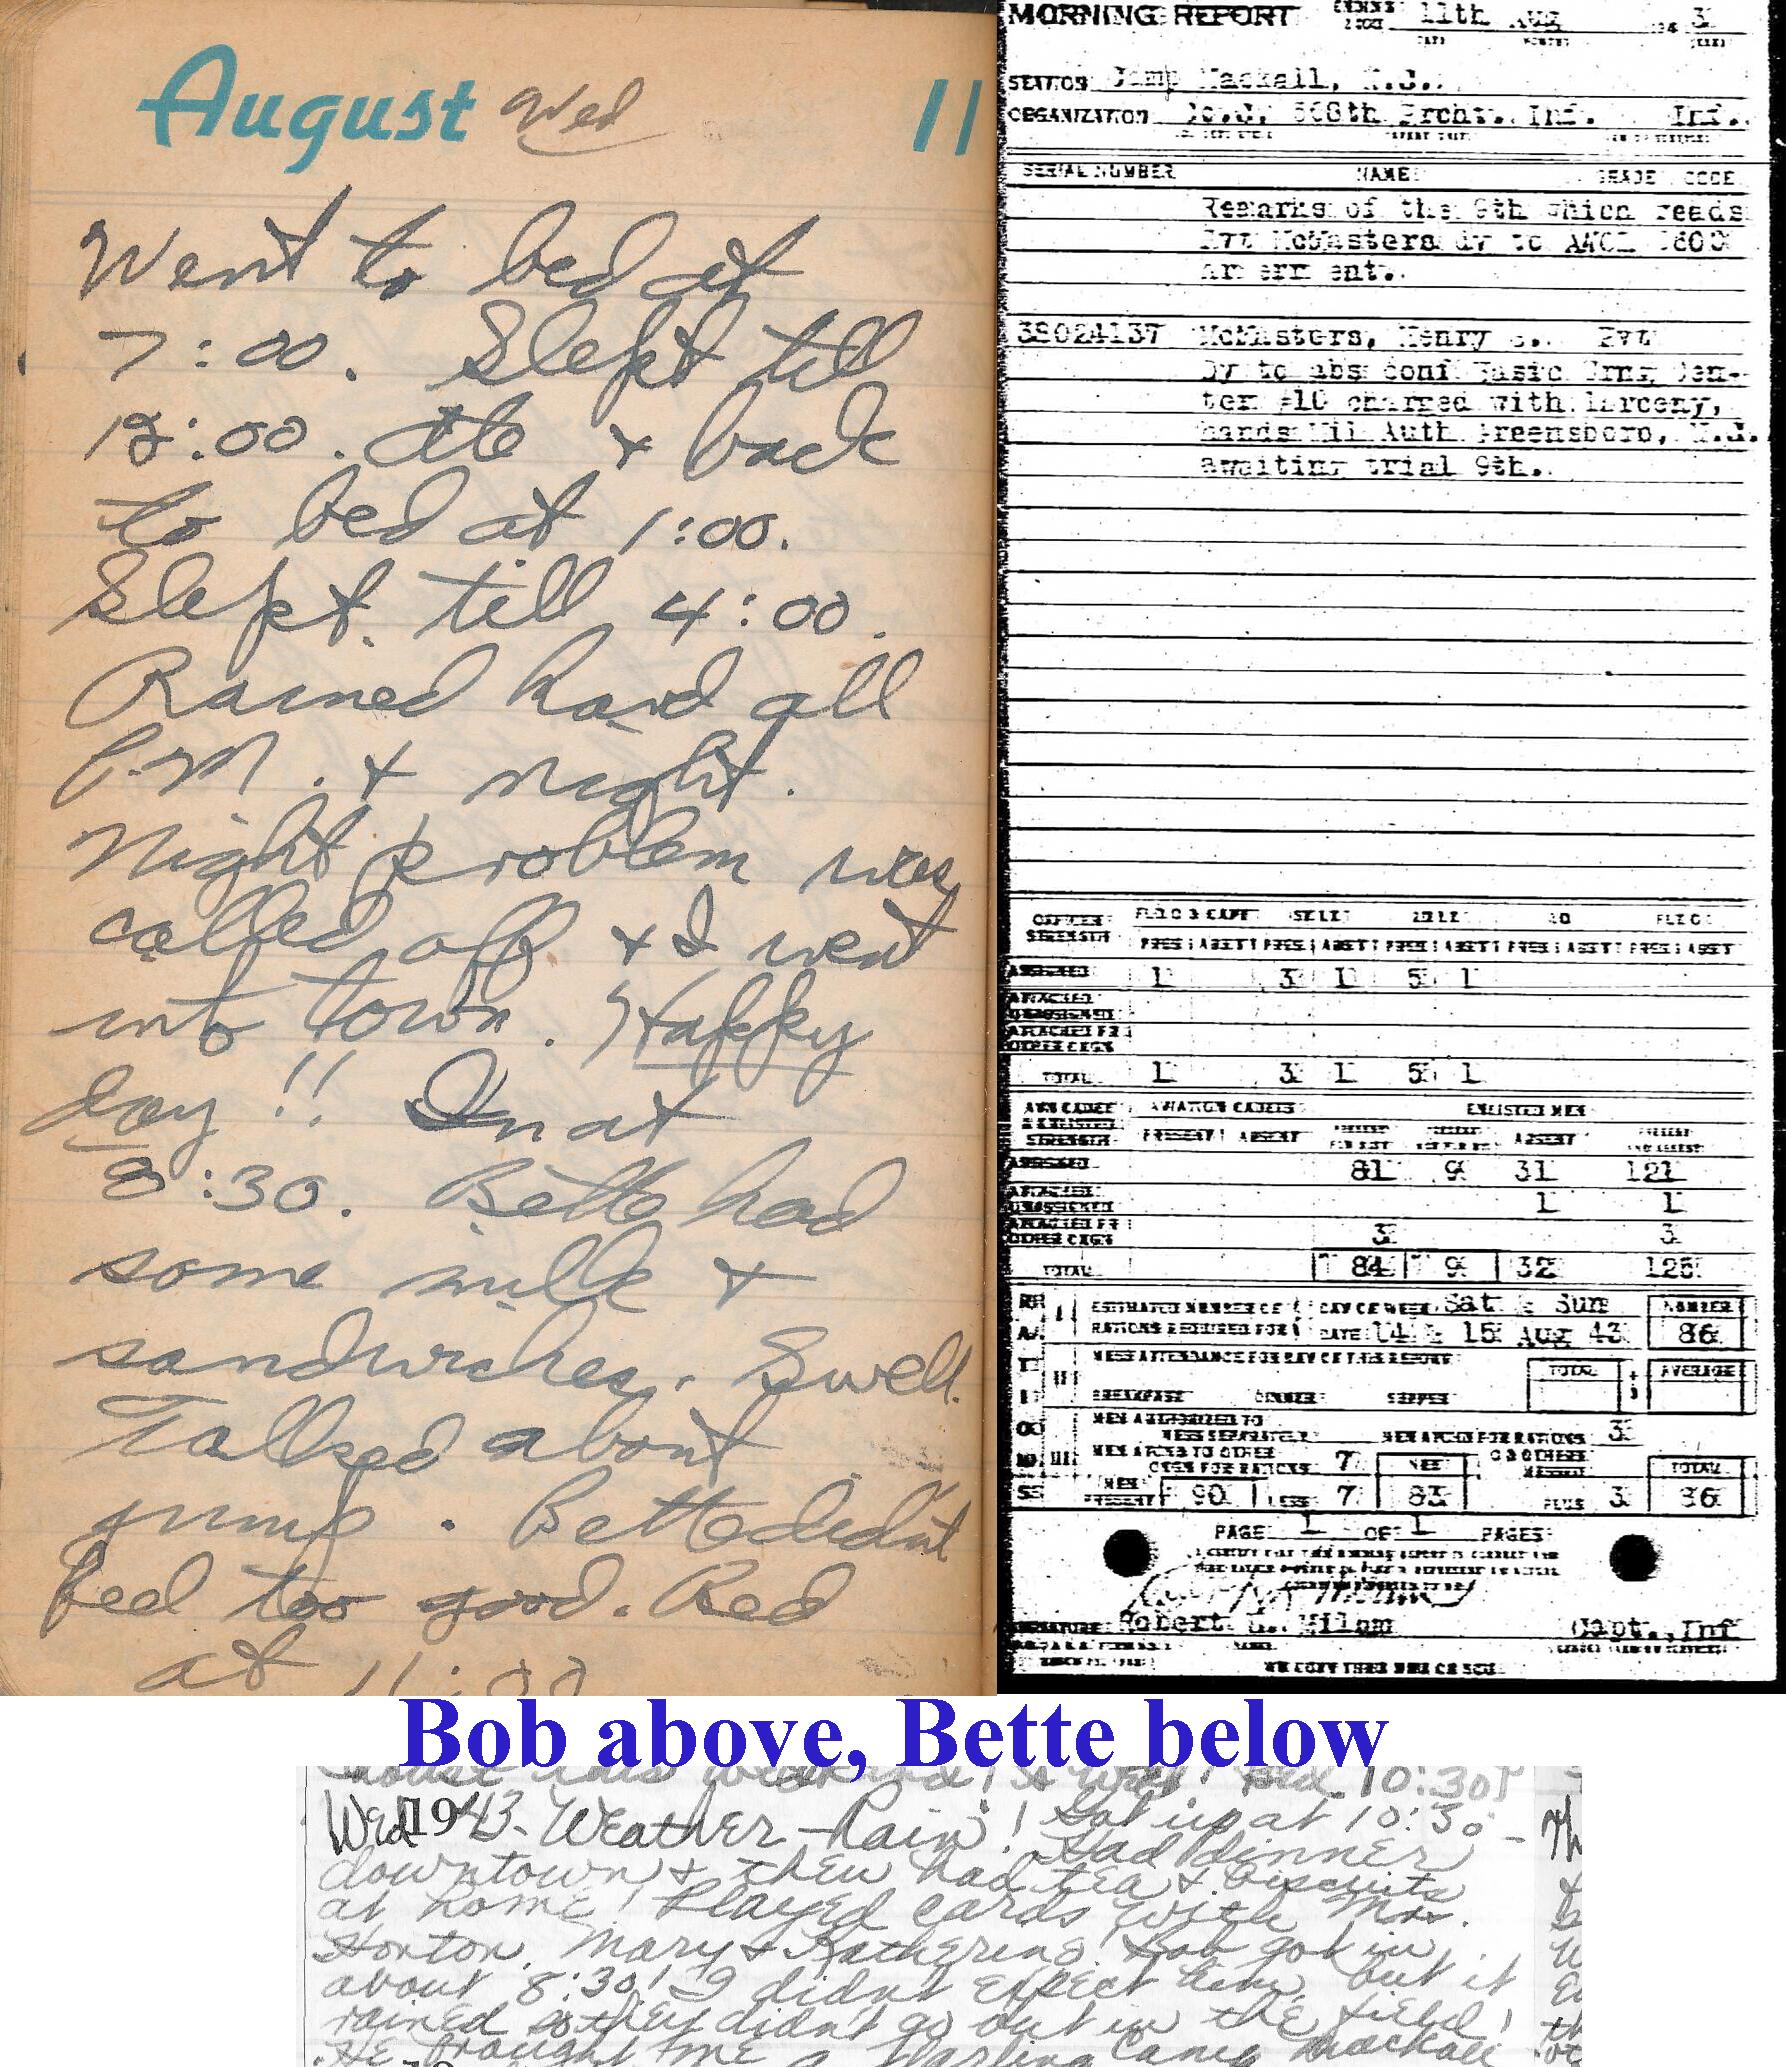 August Wed 11
Went to bed at
7:00. Slept till
12:00. Ate + back
to bed at 1:00.
Slept till 4:00.
Rained hard all
P.M. + night.
Night problem was
called off + I went
into town. Happy
day!! In at
8:30. Bette had
some milk +
sandwiches. Swell.
Talked about
jump. Bette didn't
feel too good. Bed
at 11:00
MORNING REPORT 11th Aug 3
STATION Camp Mackall, N.C.
ORGANIZATION Prcht. Inf. Inf.
SERIAL NUMBER NAME GRADE CODE
Remarks of the 9th which reads
Pvt McMasters dy to AWOL 0600
38024137 McMasters, Henry Pvt
Dy to abs conf Basic Trng Cen-
ter #10 charged with larceny,
hands Mil Auth Greensboro, N.C.
awaiting trial 9th.
OFFICER FL O & CAPT 1ST LT 2D LT WO FLT O
STRENGTH PRES ABSENT PRES ABSENT PRES ABSENT PRES ABSENT PRES ABSENT
ASSIGNED 1 3 1 5 1
ATTACHED
UNASSIGNED
ATTACHED FR
OTHER ORGN
TOTAL 1 3 1 5 1
AVIATION CADETS ENLISTED MEN
STRENGTH PRESENT ABSENT ABSENT
ASSIGNED 81 9 31 121
ATTACHED
UNASSIGNED 1 1
ATTACHED FR
OTHER ORGN 3 3
TOTAL 84 9 32 125
ESTIMATED NUMBER OF DAY OF WEEK Sat & Sun NUMBER
RATIONS REQUIRED FOR DATE 14 & 15 Aug 43 86
MESS ATTENDANCE FOR DAY OF THIS REPORT
TOTAL AVERAGE
BREAKFAST DINNER SUPPER
MEN AUTHORIZED TO
MESS SEPARATELY MEN ATCHD FOR RATIONS 3
MEN ATCHD TO OTHER
ORGN FOR RATIONS 7 NET OTHERS TOTAL
MEN PRESENT 90 LESS 7 83 PLUS 3 86
PAGE 1 OF 1 PAGES
SIGNATURE Robert Milam Capt., Inf
Bob above, Bette below
house this weekend! Bed 10:30!
Wed 1943 - Weather - Rain! Got up at 10:30 -
Had dinner
downtown + then had tea + biscuits
at home! Played cards with Mrs.
Horton, Mary + Katherine! Bob got in
about 8:30! I didn't expect him, but it
rained so they didn't go out in the field!
He brought me a darling Camp Mackall